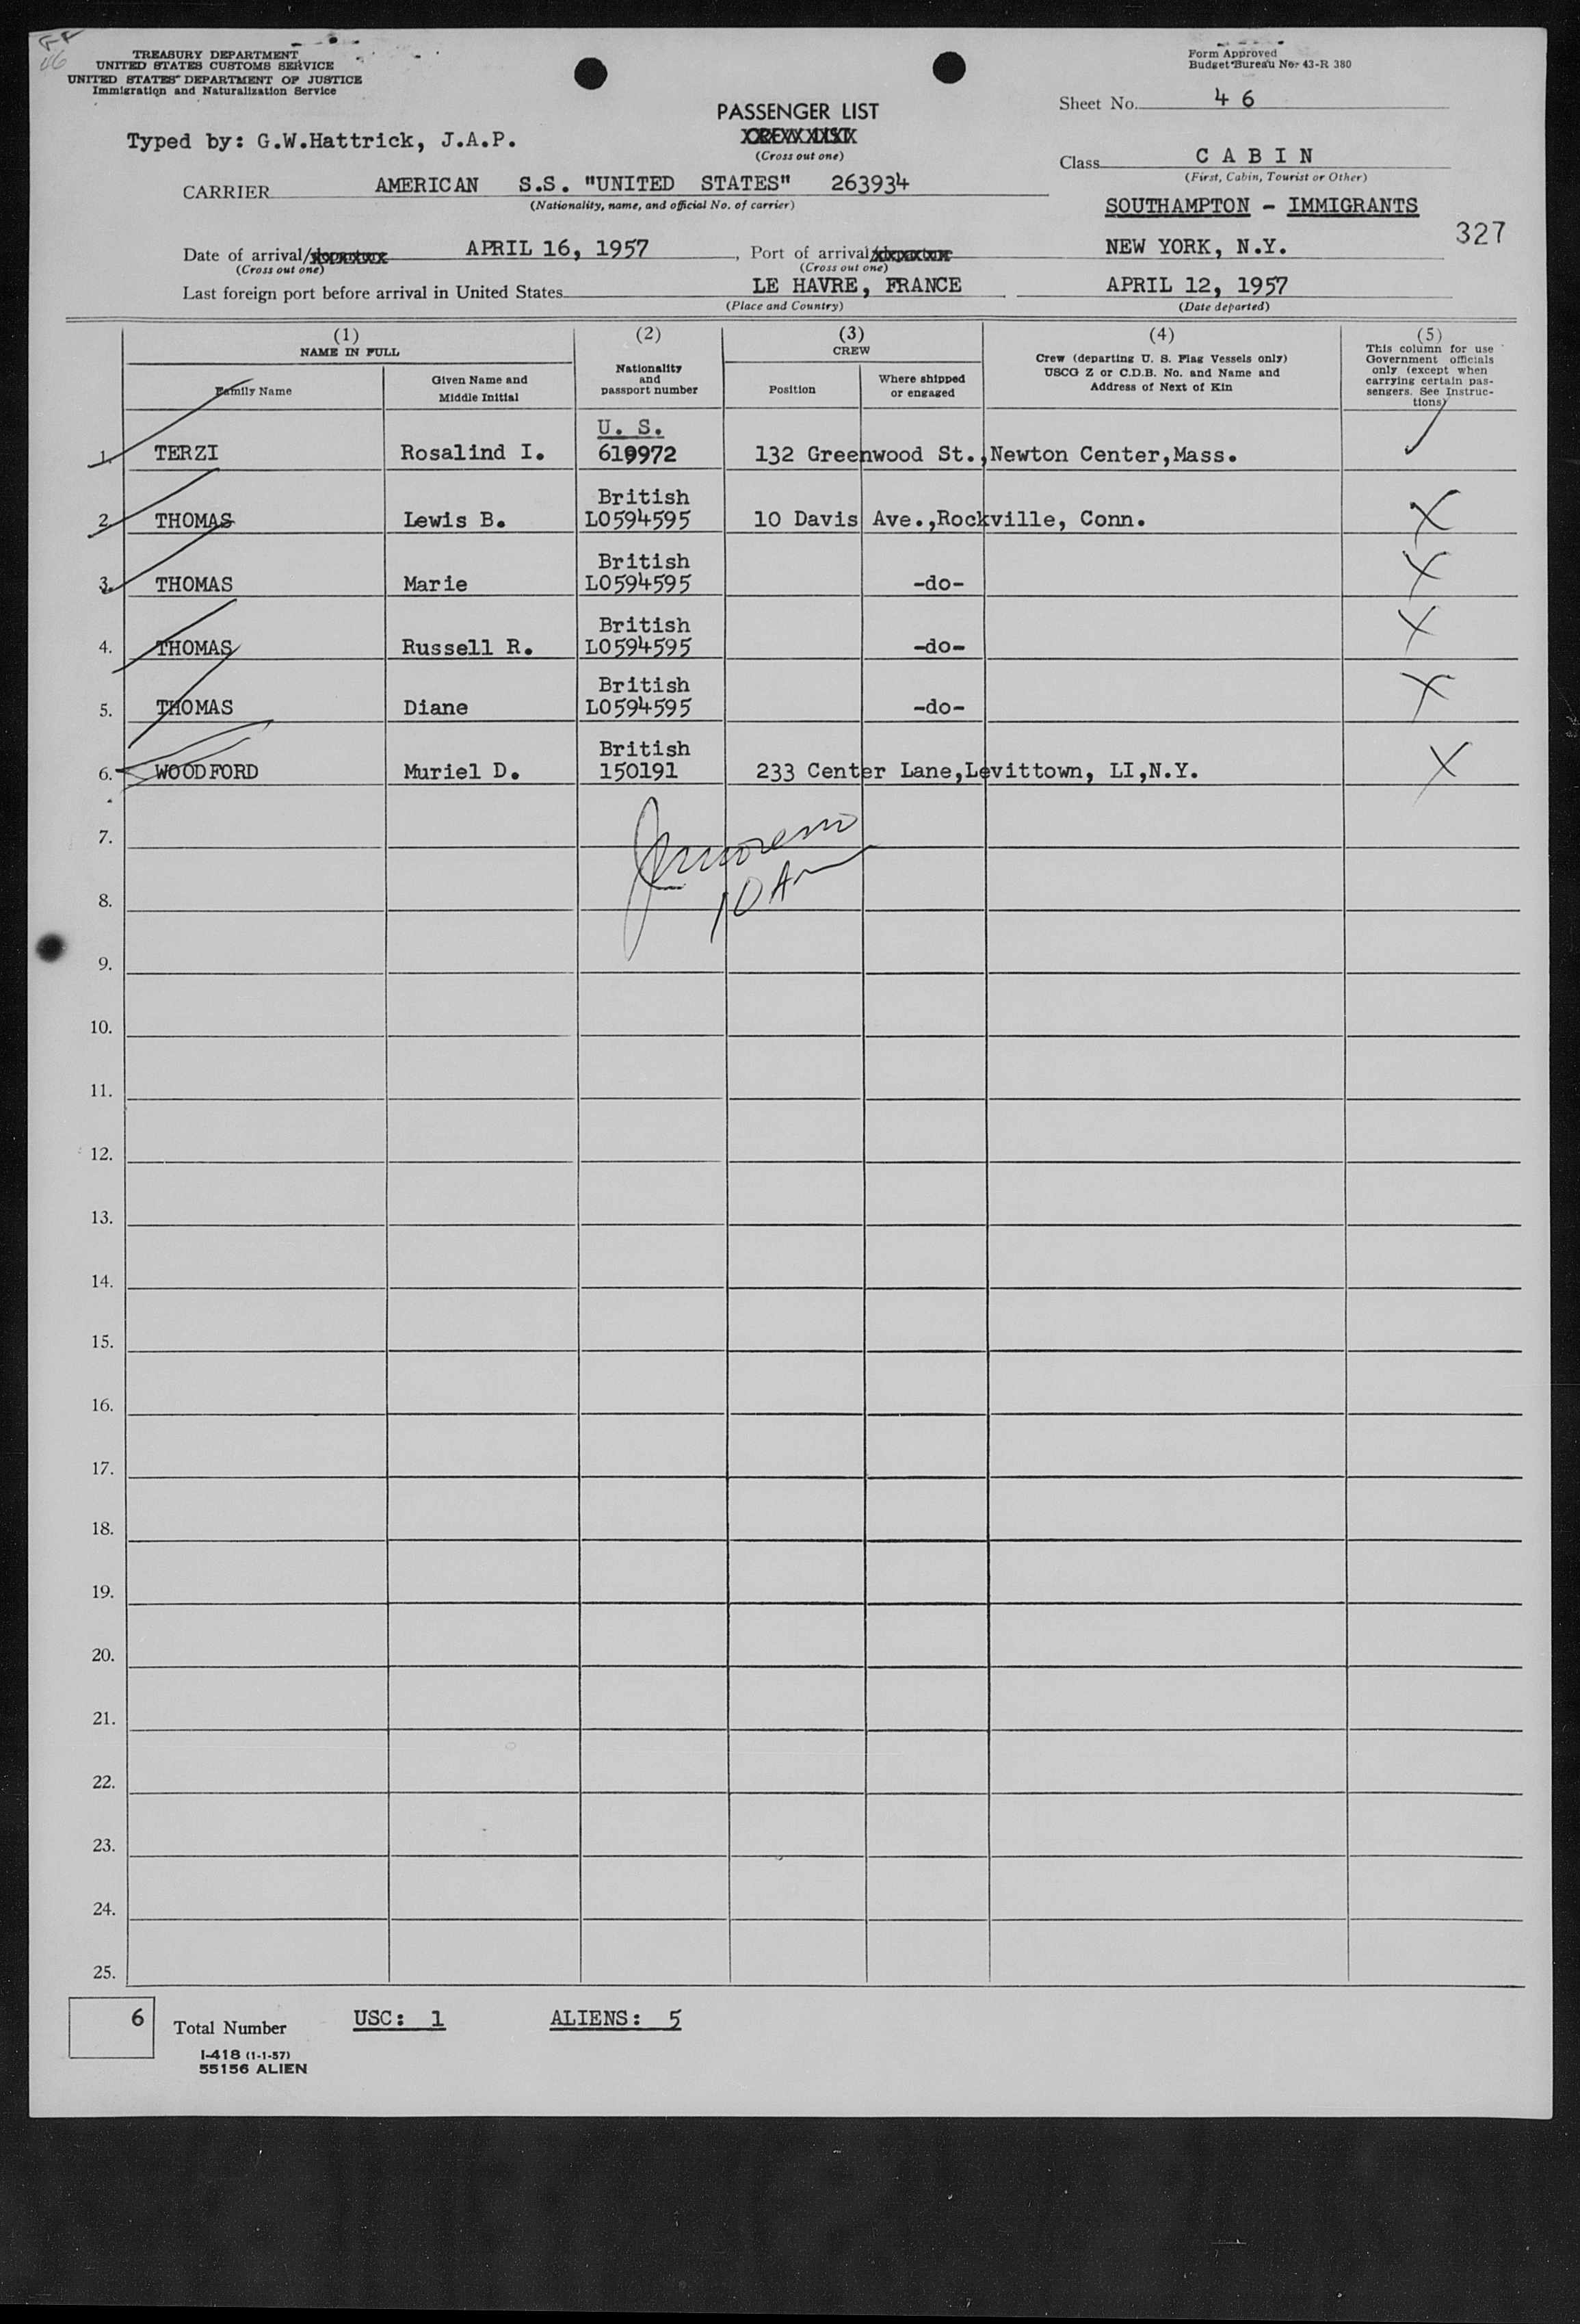 46
TREASURY DEPARTMENT
UNITED STATES CUSTOMS SERVICE
UNITED STATES DEPARTMENT OF JUSTICE
Immigration and Naturalization Service
Form Approved
Budget Bureau No. 43-R 380
Typed by: G.W.Hattrick, J.A.P.
PASSENGER LIST
(Cross out one)
Sheet No. 4 6
Class C A B I N
(First, Cabin, Tourist or Other)
CARRIER AMERICAN S.S. "UNITED STATES" 263934
(Nationality, name, and official No. of carrier)
SOUTHAMPTON - IMMIGRANTS
327
Date of arrival/departure APRIL 16, 1957, Port of arrival/departure NEW YORK, N.Y.
(Cross out one) (Cross out one)
Last foreign port before arrival in United States LE HAVRE, FRANCE APRIL 12, 1957
(Place and Country) (Date departed)
(1) (2) (3) (4) (5)
NAME IN FULL
Family Name
Given Name and Middle Initial
Nationality and passport number
CREW
Position
Where shipped or engaged
Crew (departing U. S. Flag Vessels only)
USCG Z or C.D.B. No. and Name and
Address of Next of Kin
This column for use
Government officials
only (except when
carrying certain pas-
sengers. See Instruc-
tions)
U. S.
1. TERZI Rosalind I. 619972 132 Greenwood St.,Newton Center,Mass.
British
2. THOMAS Lewis B. L0594595 10 Davis Ave.,Rockville, Conn. X
British
3. THOMAS Marie L0594595 -do- X
British
4. THOMAS Russell R. L0594595 -do- X
British
5. THOMAS Diane L0594595 -do- X
British
6. WOODFORD Muriel D. 150191 233 Center Lane,Levittown, LI,N.Y. X
7.
10 Am
8.
9.
10.
11.
12.
13.
14.
15.
16.
17.
18.
19.
20.
21.
22.
23.
24.
25.
6 Total Number USC: 1 ALIENS: 5
I-418 (1-1-57)
55156 ALIEN